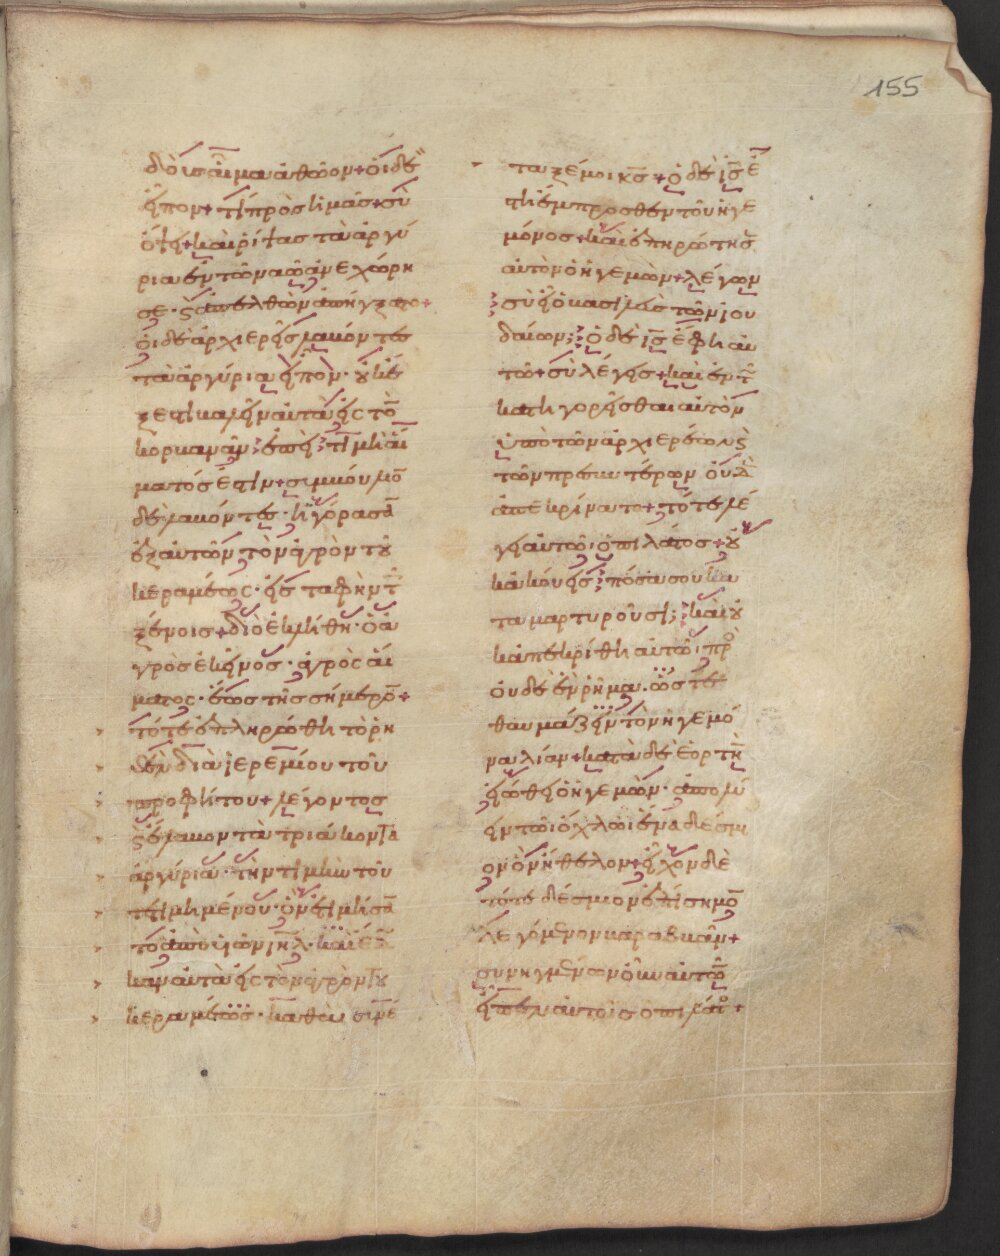 155
δοὺς αἷμα ἀθῶον + οἱ δὲ
εἶπον + τί πρὸς ἡμᾶς + σὺ
ὄψει + καὶ ῥίψας τὰ ἀργύ
ρια ἐν τῶ ναῶ ἀνεχώρη
σε · ϗ ἀπελθὼν ἀπήγξατο +
οἱ δὲ ἀρχιερεῖς λαβόντες
τὰ ἀργύρια εἶπον · οὐκ ἔ
ξεστι βαλεῖν αὐτὰ εἰς τὸν
κορβανᾶν · ἐπεὶ τιμὴ αἵ
ματός ἐστιν + συμβούλιον
δὲ λαβόντες · ἠγόρασαν
ἐξ αὐτῶν τὸν ἀγρὸν τοῦ
κεραμέως · εἰς ταφὴν τοῖς
ξένοις + διὸ ἐκλήθη · ὁ ἀ
γρὸς ἐκεῖνος · ἀγρὸς αἵ
ματος · ἕως τῆς σήμερον +
τότε ἐπληρώθη τὸ ῥη
θὲν διὰ ἰερεμίου τοῦ
προφήτου + λέγοντος
ϗ ἔλαβον τὰ τριάκοντα
ἀργύρια · τὴν τιμὴν τοῦ
τετιμημένου · ὃν ἐτιμήσαντο
ἀπὸ υἱῶν ιηλ · καὶ ἔδω
καν αὐτὰ εἰς τὸν ἀγρὸν τοῦ
κεραμέως · καθὰ συνέ
ταξέ μοι κς + ὁ δὲ ις ἔ
στη ἔμπροσθεν τοῦ ἡγε
μόνος + καὶ ἐπηρώτησεν
αὐτὸν ὁ ἡγεμὼν + λέγων
σὺ εἶ ὁ βασιλεὺς τῶν ἰου
δαίων; ὁ δὲ ις ἔφη αὐ
τῶ + σὺ λέγεις + καὶ ἐν τῶ
κατηγορεῖσθαι αὐτὸν
ὑπὸ τῶν ἀρχιερέων ϗ
τῶν πρεσβυτέρων οὐδὲν
ἀπεκρίνατο + τότε λέ
γει αὐτῶ · ὁ πιλάτος + οὐ
κ ἀκούεις πόσα σου κα
ταμαρτυροῦσι; καὶ οὐ
κ ἀπεκρίθη αὐτῶ πρὸς
οὐδὲ ἓν ῥῆμα · ὥστε
θαυμάζειν τὸν ἡγεμό
να λίαν + κατὰ δὲ ἑορτὴν
εἰώθει ὁ ἡγεμὼν · ἀπολύ
ειν τῶι ὄχλωι ἕνα δέσμι
ον ὃν ἤθελον + εἶχον δὲ
τότε δέσμιον ἐπίσημον
λεγόμενον βαραββᾶν +
συνηγμένων οὖν αὐτῶν
εἶπεν αὐτοῖς ὁ πιλάτος +